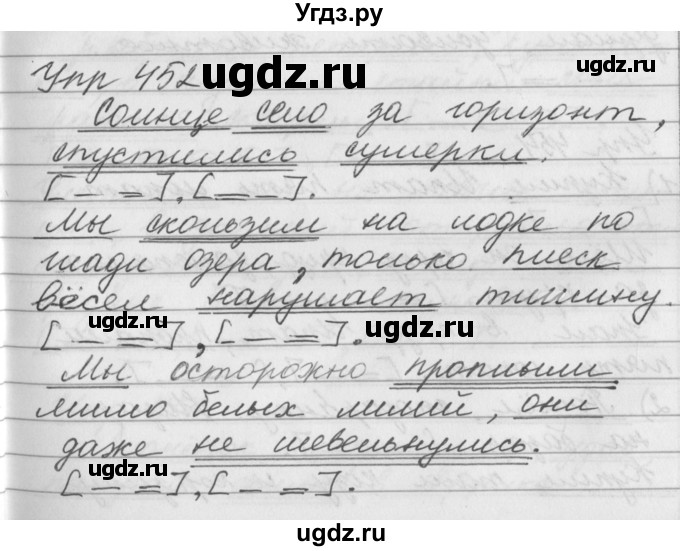 Угдз.ру
Упр 452
ugdz.ru
Солнце село за горизонт,
спустились сумерки.
[— =], [= —].
ugdz.ru
Мы скользим на лодке по
глади озера, только плеск
вёсел нарушает тишину.
[— =], [— =].
ugdz.ru ugdz.ru
Мы осторожно проплыли
мимо белых лилий, они
даже не шевельнулись.
ugdz.ru ugdz.ru
[— =], [— =].
ugdz.ru